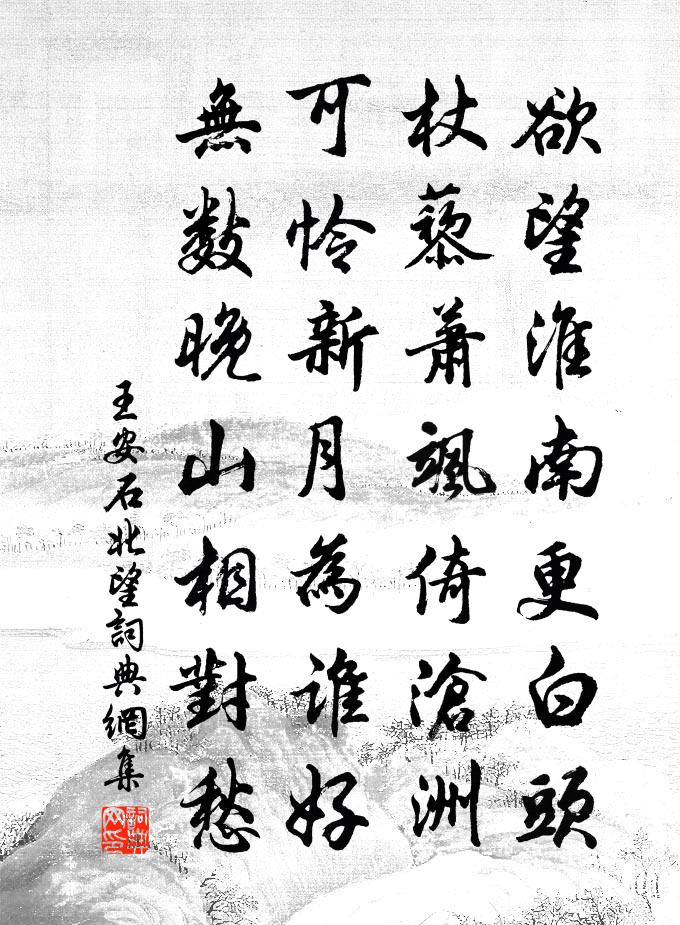 欲望淮南更白頭
杖藜蕭颯倚滄洲
可怜新月為誰好
無數晚山相對愁
王安石北望詞典網集